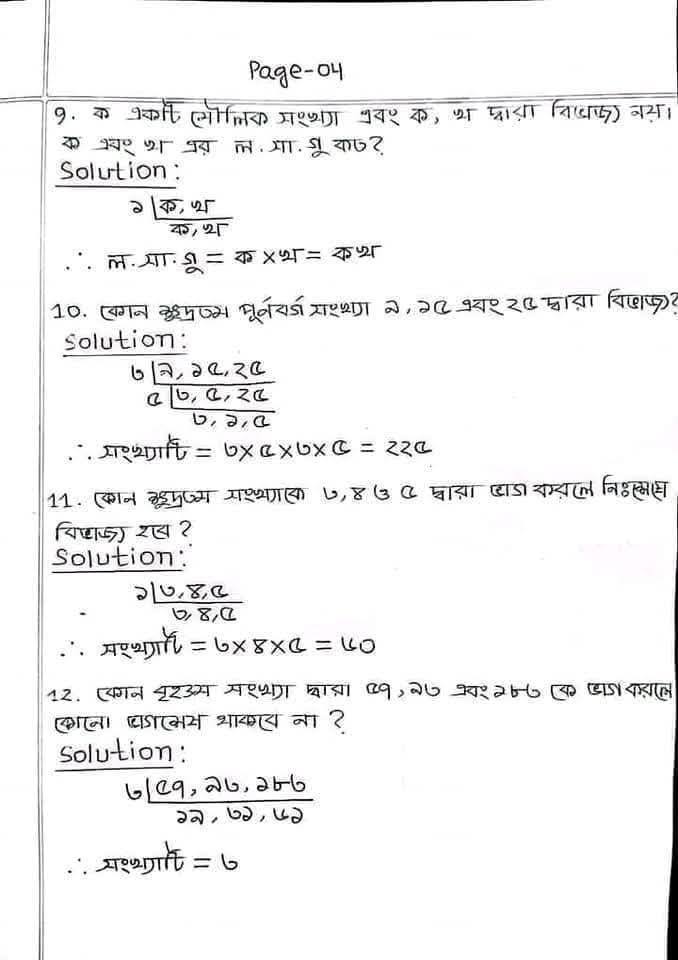 Page-04
9. ক একটি মৌলিক সংখ্যা এবং ক, খ দ্বারা বিভাজ্য নয়।
ক এবং খ এর ল.সা.গু কত?
Solution:
১ | ক, খ
ক, খ
∴ ল.সা.গু = ক × খ = কখ
10. কোন ক্ষুদ্রতম পূর্নবর্গ সংখ্যা ৯, ১৫ এবং ২৫ দ্বারা বিভাজ্য?
Solution:
৩ | ৯, ১৫, ২৫
৫ | ৩, ৫, ২৫
৩, ১, ৫
∴ সংখ্যাটি = ৩×৫×৩×৫ = ২২৫
11. কোন ক্ষুদ্রতম সংখ্যাকে ৩, ৪ ও ৫ দ্বারা ভাগ করলে নিঃশেষে
বিভাজ্য হবে?
Solution:
১ | ৩, ৪, ৫
৩, ৪, ৫
∴ সংখ্যাটি = ৩×৪×৫ = ৬০
12. কোন বৃহত্তম সংখ্যা দ্বারা ৫৭, ৯৩ এবং ১৮৩ কে ভাগ করলে
কোনো ভাগশেষ থাকবে না?
Solution:
৩ | ৫৭, ৯৩, ১৮৩
১৯, ৩১, ৬১
∴ সংখ্যাটি = ৩